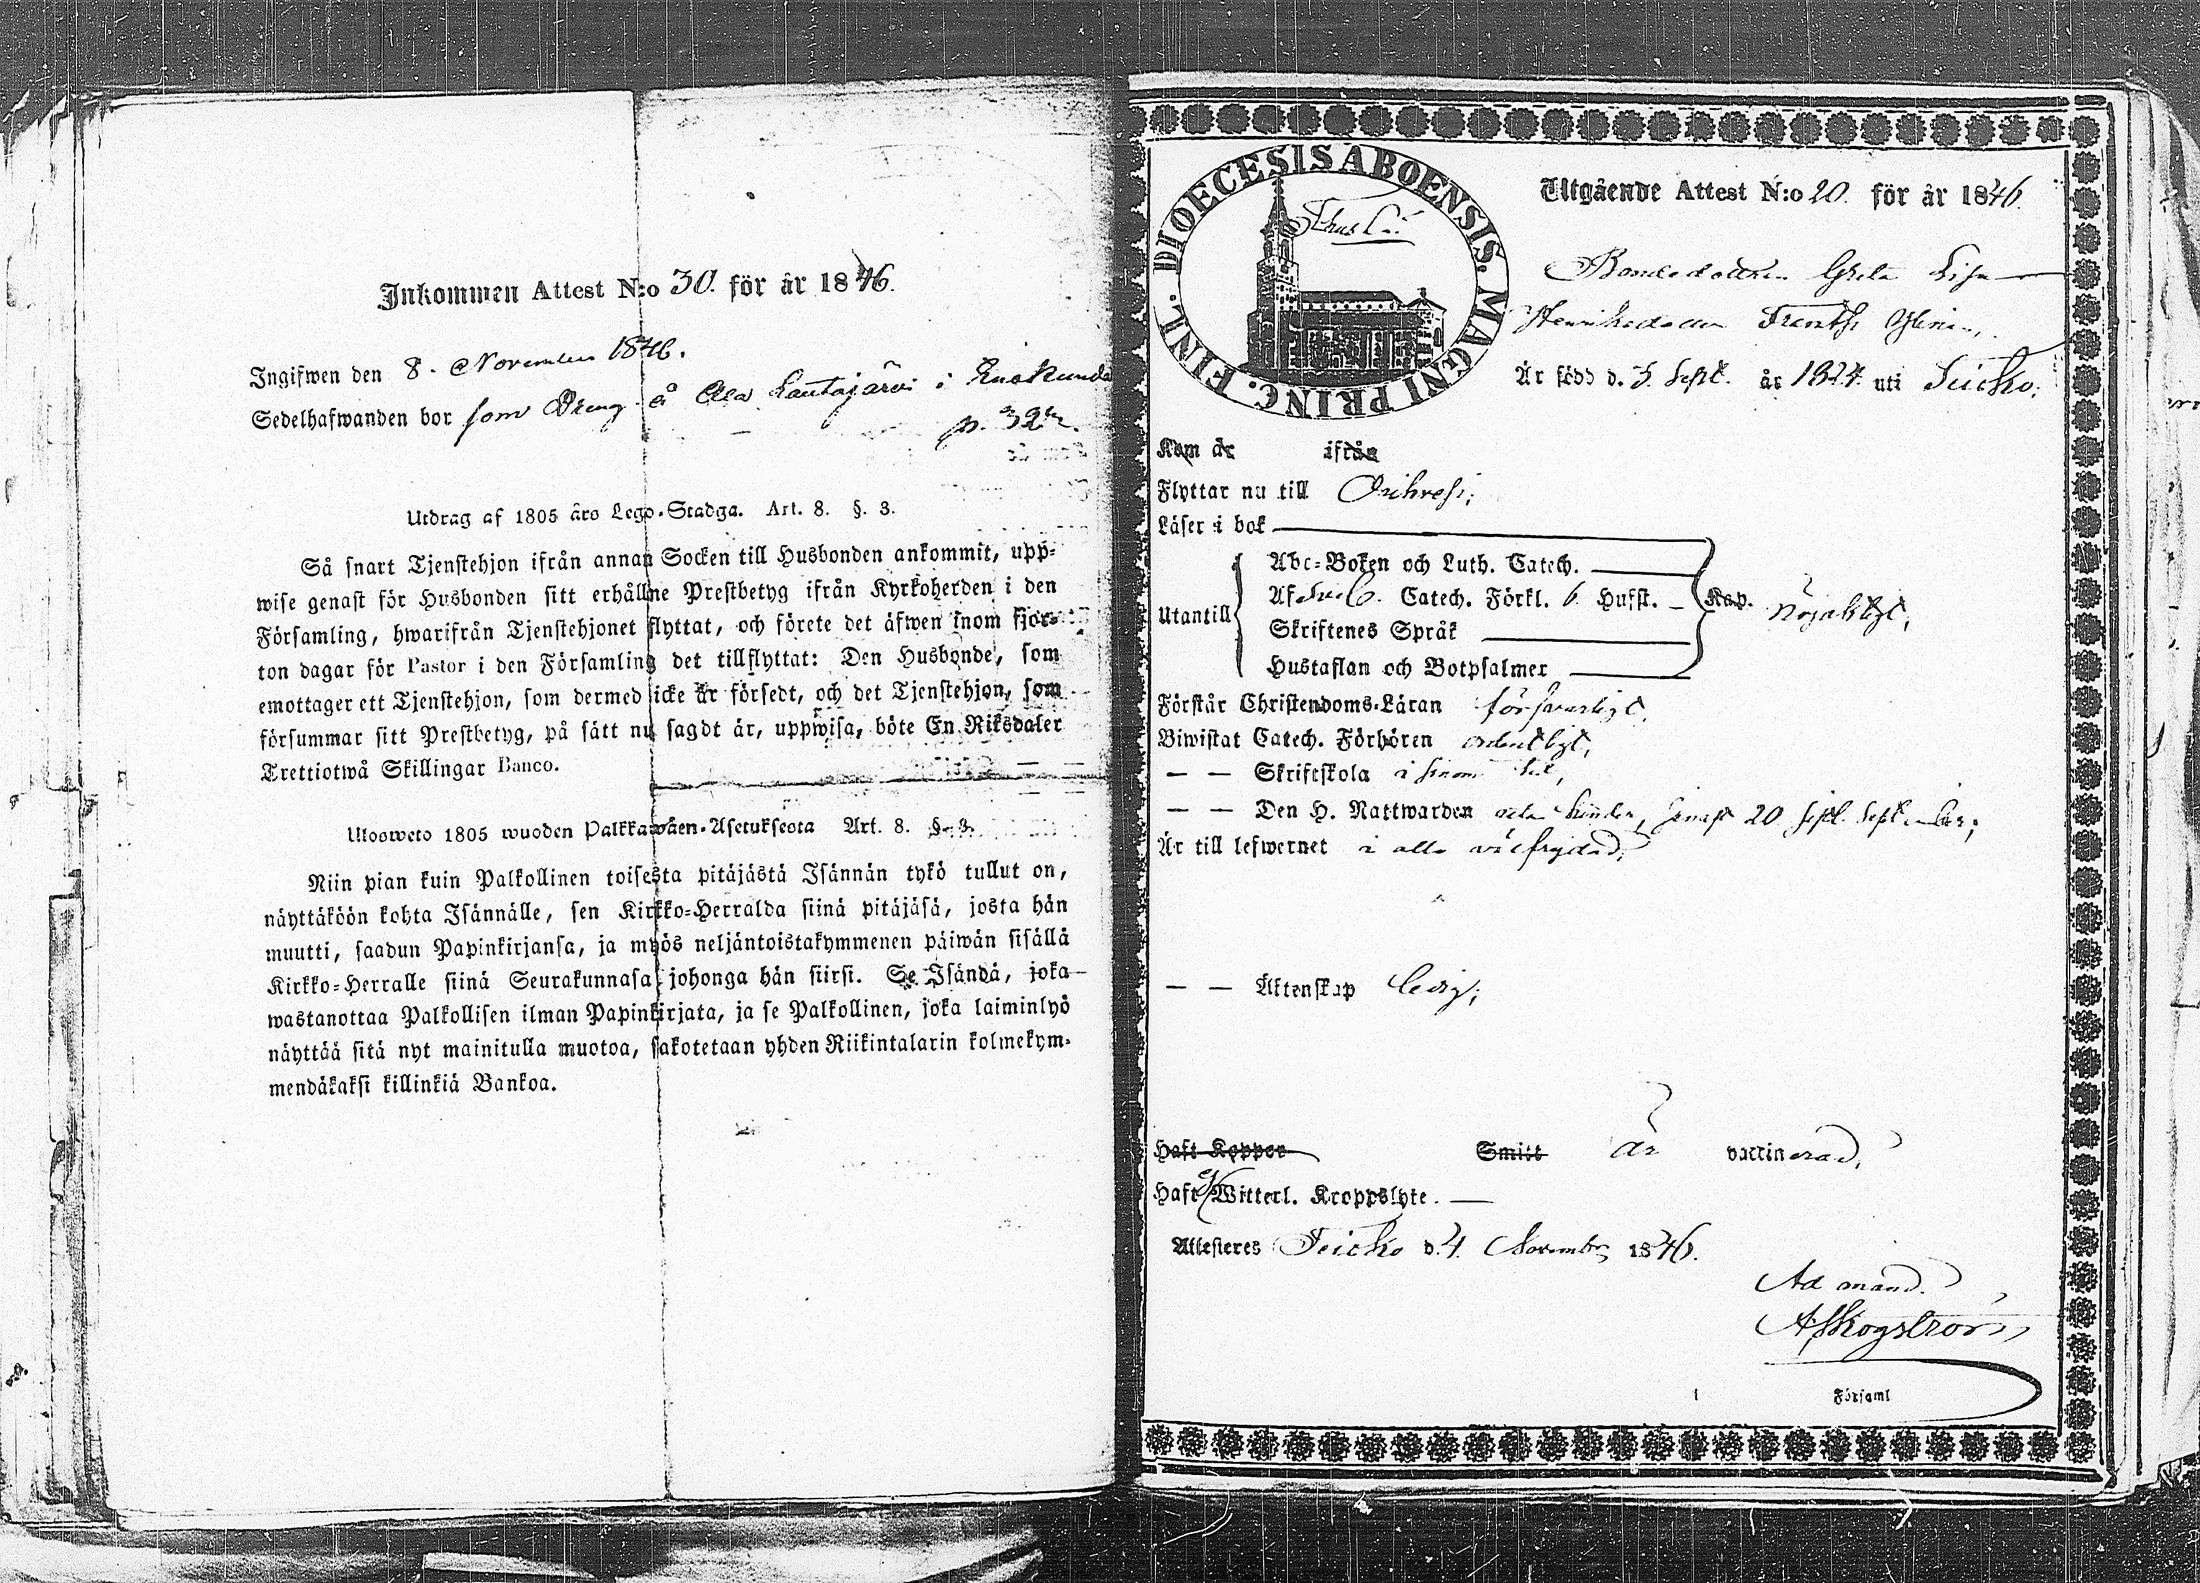 Inkommen Attest N:o 30. för år 1846.
Ingifwen den 8. November 1846.
Sedelhafwanden bor som Dreng å Ala Lautajärvi i
p. 322.
Utdrag af 1805 års Lego-Stadga. Art. 8. §. 3.
Så snart Tjenstehjon ifrån annan Socken till Husbonden ankommit, upp-
wise genast för Husbonden sitt erhållne Prestbetyg ifrån Kyrkoherden i den
Församling, hwarifrån Tjenstehjonet flyttat, och förete det äfwen inom fjor-
ton dagar för Pastor i den Församling det tillflyttat: Den Husbonde, som
emottager ett Tjenstehjon, som dermed icke är försedt, och det Tjenstehjon, som
försummar sitt Prestbetyg, på sätt nu sagdt är, uppwisa, böte En Riksdaler
Trettiotwå Skillingar Banco.
Ulosweto 1805 wuoden Palkkawäen-Asetuksesta Art. 8. §. 3.
Niin pian kuin Palkollinen toisesta pitäjästä Isännän tykö tullut on,
näyttäköön kohta Isännälle, sen Kirkko-Herralda siinä pitäjäsä, josta hän
muutti, saadun Papinkirjansa, ja myös neljäntoistakymmenen päiwän sisällä
Kirkko-Herralle siinä Seurakunnasa johonga hän siirsi. Se Isändä, joka
wastanottaa Palkollisen ilman Papinkirjata, ja se Palkollinen, joka laiminlyö
näyttää sitä nyt mainitulla muotoa, sakotetaan yhden Riikintalarin kolmekym-
mendäkaksi killinkiä Bankoa.
DIOECESIS ABOENSIS. MAGNI PRINC. FINL.
Utgående Attest N:o 20. för år 1846.
Bondedottren Greta Lisa
Henriksdotter
Är född d. 5. Sept. år 1824. uti Teisko.
Kom år ifrån
Flyttar nu till Orihvesi;
Läser i bok
Abc-Boken och Luth. Catech.
Af Catech. Förkl. 6. Hufst. Kap. Nöjaktigt,
Utantill
Skriftenes Språk
Hustaflan och Botpsalmer
Förstår Christendoms-Läran försvarligt,
Biwistat Catech. Förhören ordentligt,
— — Skriftskola i sinom tid,
— — Den H. Nattwarden senast 20 sistl. September;
Är till lefwernet i allo välfrejdad;
— — Äktenskap ledig;
Haft Koppor Smitt är vaccinerad;
Haft ej Witterl. Kroppslyte.
Attesteres Teisko d. 4. November 1846.
Ad mand.
A Skogström
i Församl